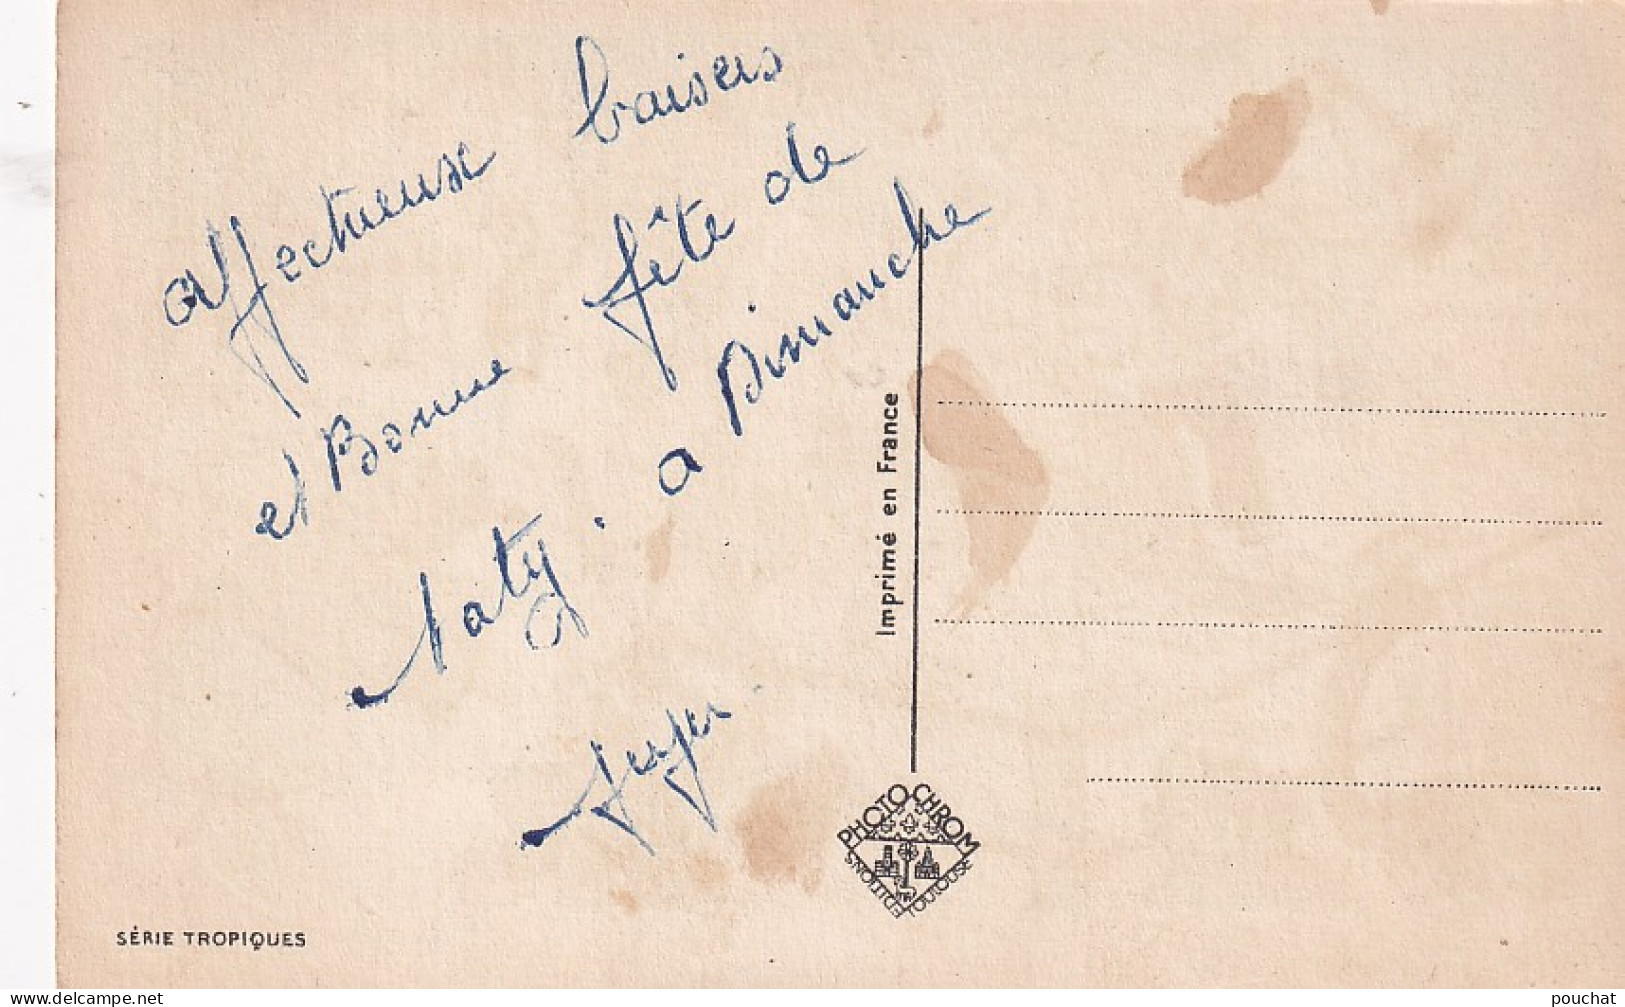 affectueux baisers
et Bonne fête de
Naty. a Dimanche
Imprimé en France
PHOTOCHROM
EDITIONS
TOULOUSE
SÉRIE TROPIQUES
www.delcampe.net
pouchat